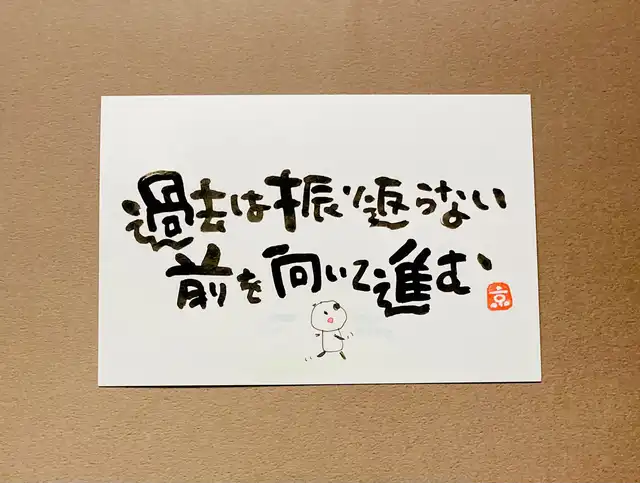 過去は振り返らない
前を向いて進む
京